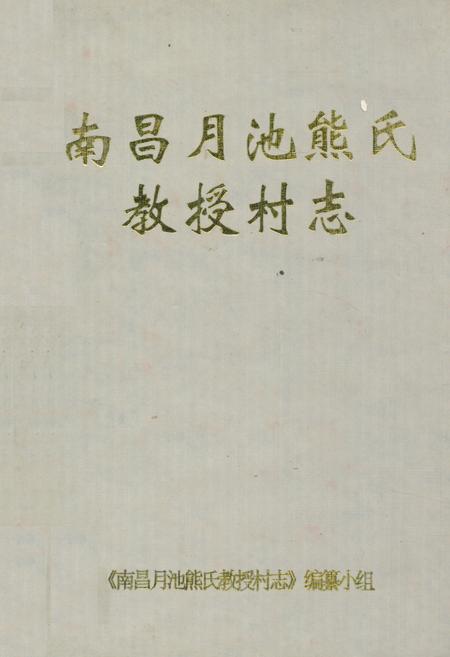 南昌月池熊氏
教授村志
《南昌月池熊氏教授村志》编纂小组